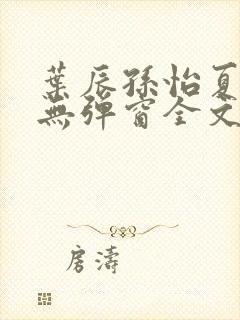 葉辰孫怡夏
無彈窗全文
房濤